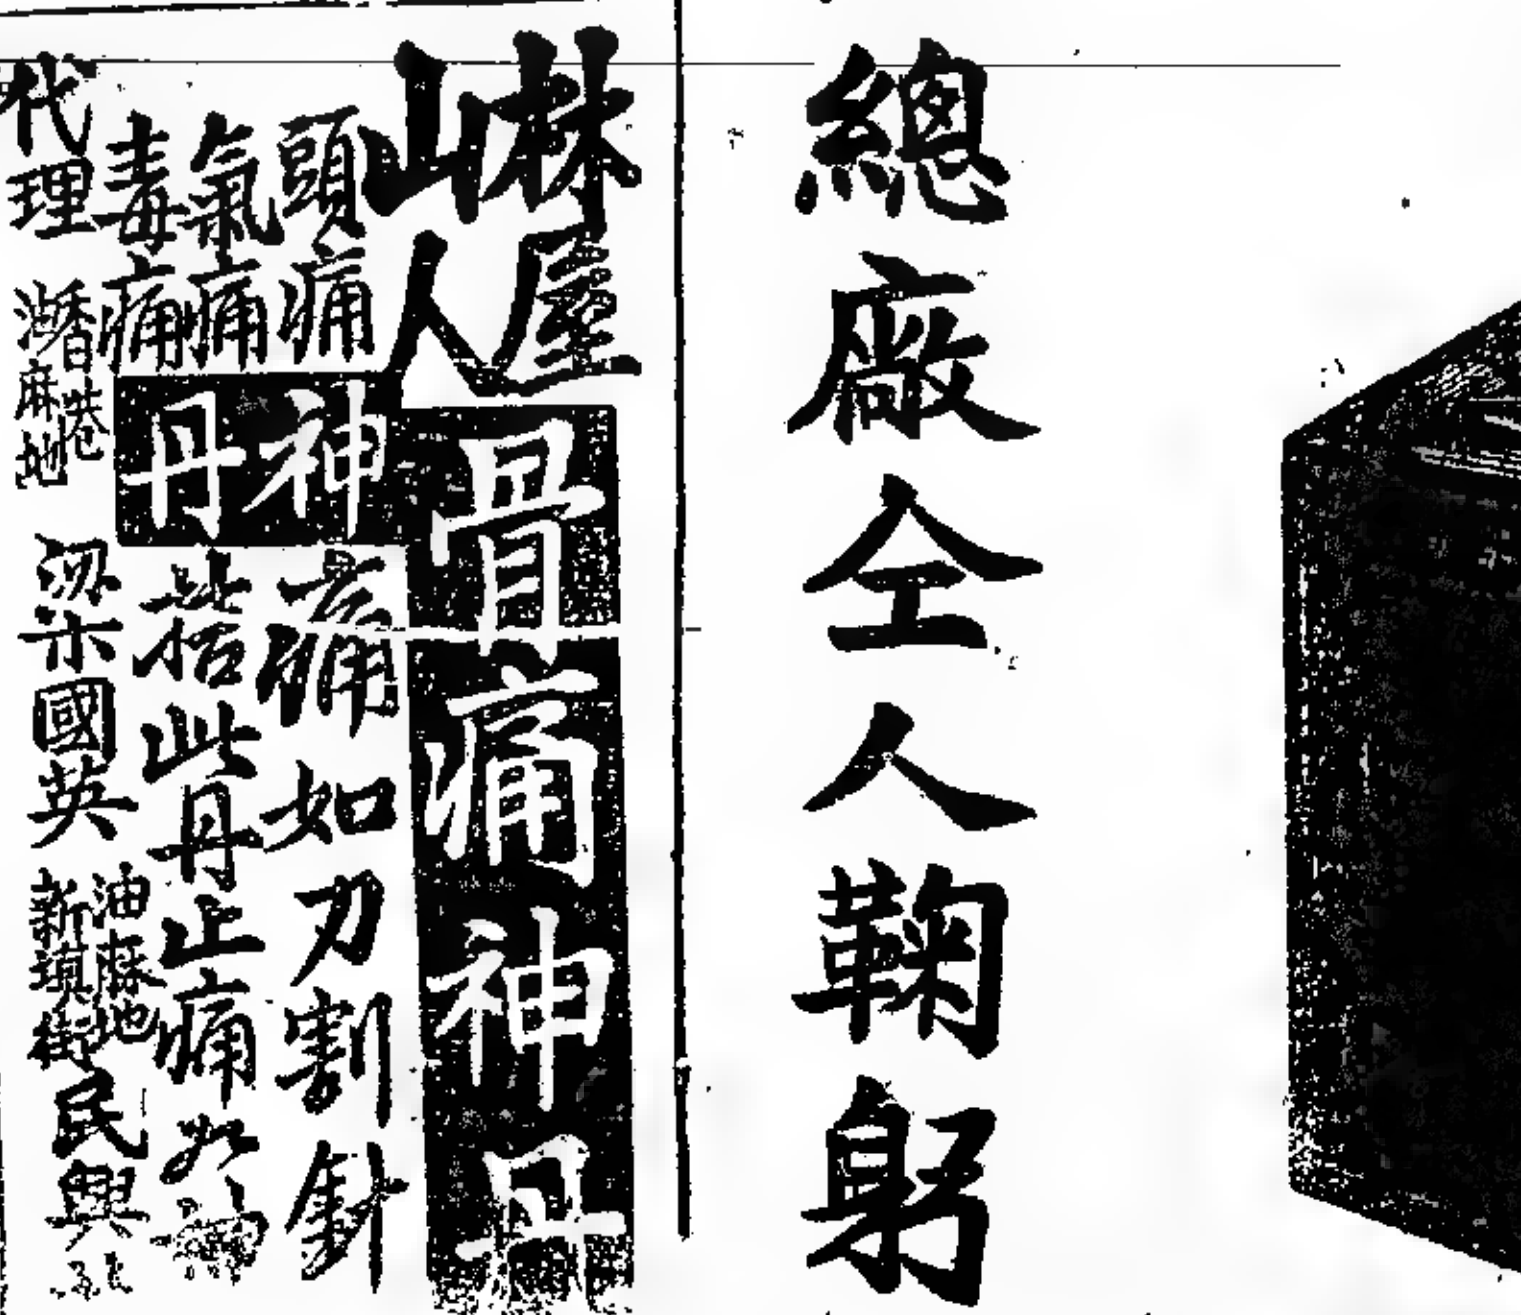 總廠仝人鞠躬
林屋山人
骨痛神丹
頭痛
氣痛
毒痛
神丹
痛如刀割針
搭此丹止痛如神
代理
香港
湖麻地
梁國英
油麻地
新填街
民興